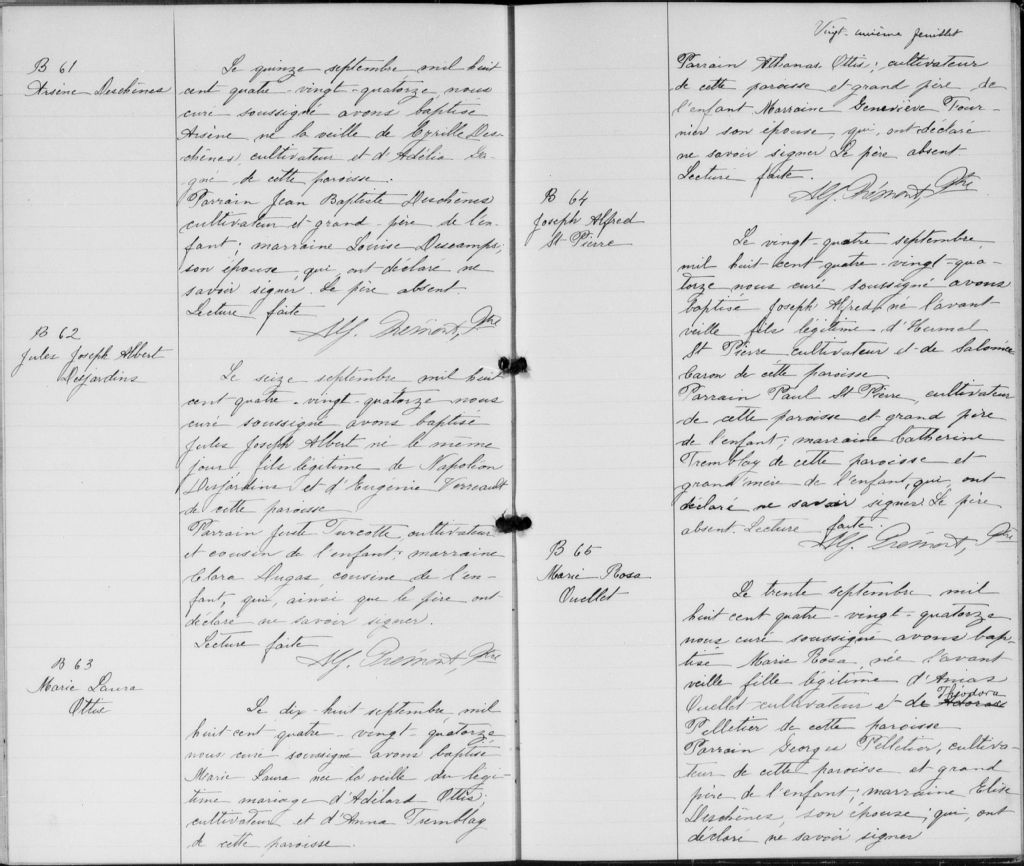 B 61
Arsène Deschênes
Le quinze septembre mil huit
cent quatre-vingt-quatorze, nous
curé soussigné avons baptisé
Arsène né la veille de Cyrille Des-
chênes, cultivateur et d'Adélia
de cette paroisse.
Parrain Jean Baptiste Deschênes
cultivateur et grand-père de l'en-
fant; marraine Louise Descamps,
son épouse, qui ont déclaré ne
savoir signer. Le père absent.
Lecture faite
Ptre
B 62
Jules Joseph Albert
Desjardins
Le seize septembre mil huit
cent quatre-vingt-quatorze nous
curé soussigné avons baptisé
Jules Joseph Albert né le même
jour, fils légitime de Napoléon
Desjardins et d'Eugénie Verreault
de cette paroisse
Parrain Juste Turcotte, cultivateur
et cousin de l'enfant; marraine
Clara Dugas cousine de l'en-
fant, qui, ainsi que le père ont
déclaré ne savoir signer.
Lecture faite
Ptre
B 63
Marie Laura
Ottis
Le dix-huit septembre mil
huit cent quatre-vingt-quatorze
nous curé soussigné avons baptisé
Marie Laura née la veille du légi-
time mariage d'Adélard Ottis;
cultivateur et d'Anna Tremblay
de cette paroisse.
Vingt-unième feuillet
Parrain Athanas Ottis; cultivateur
de cette paroisse et grand père de
l'enfant Marraine Geneviève Four-
nier son épouse, qui, ont déclaré
ne savoir signer Le père absent
Lecture faite.
Ptre
B 64
Joseph Alfred
St Pierre
Le vingt-quatre septembre,
mil huit cent quatre-vingt-qua-
torze nous curé soussigné avons
baptisé Joseph Alfred né l'avant
veille fils légitime d'
St Pierre cultivateur et de Salomée
Caron de cette paroisse
Parrain Paul St Pierre, cultivateur
de cette paroisse et grand père
de l'enfant; marraine Catherine
Tremblay de cette paroisse et
grand'mère de l'enfant, qui, ont
déclaré ne savoir signer. Le père
absent. Lecture faite.
Ptre
B 65
Marie Rosa
Ouellet
Le trente septembre mil
huit cent quatre-vingt-quatorze
nous curé soussigné avons bap-
tisé Marie Rosa, née l'avant
veille fille légitime d'
Théodora
Ouellet cultivateur et de
Pelletier de cette paroisse
Parrain Georges Pelletier, cultiva-
teur de cette paroisse et grand
père de l'enfant; marraine Elise
Deschênes, son épouse; qui, ont
déclaré ne savoir signer